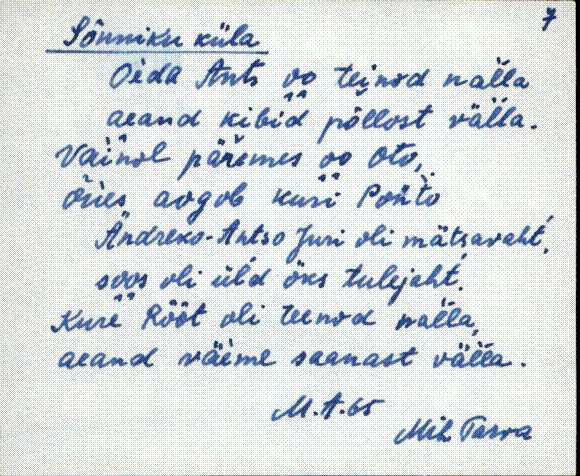 7
Sõnniku küla
Oida Ants oo teinod nalla
aeand kibid põllost välla.
Vainol päremes oo Oto,
õues aogob kuri Ponto
Andreko-Antso Juri oli mätsavaht,
soos oli üld öks tulejaht.
Kure Rööt oli teenod nalla,
aeand väeme saanast välla.
M.A.65
Mih. Tarva